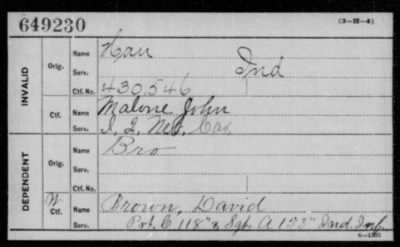 649230
(3—H—4)
INVALID
Orig.
Name
Serv.
Ind
Ctf. No.
430,546
Ctf.
Name
Malone John
Serv.
I, 2, Neb. Cav.
DEPENDENT
Orig.
Name
Bro
Serv.
Ctf. No.
W
Ctf.
Name
Brown, David
Serv.
Pvt, C 118" & Sgt A 153" Ind. Inf.